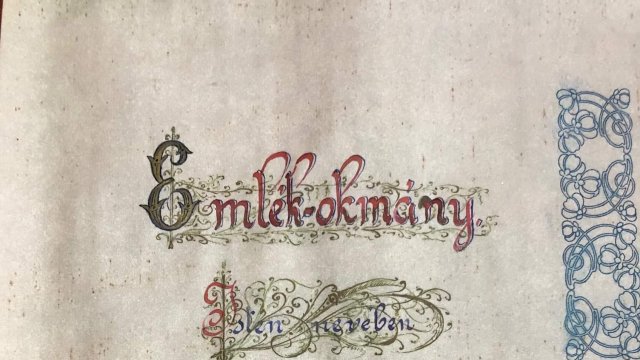 Emlék-okmány.
Isten nevében